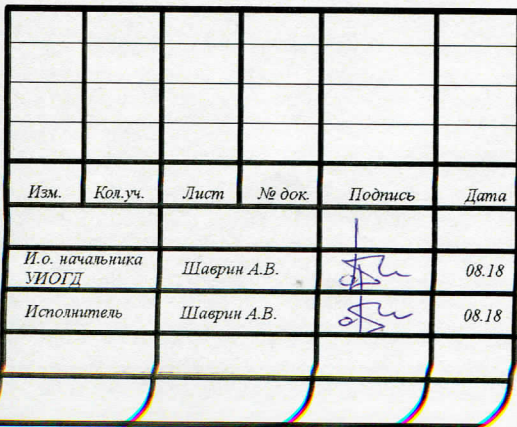 Изм. Кол.уч. Лист № док. Подпись Дата
И.о. начальника
УИОГД Шаврин А.В. 08.18
Исполнитель Шаврин А.В. 08.18